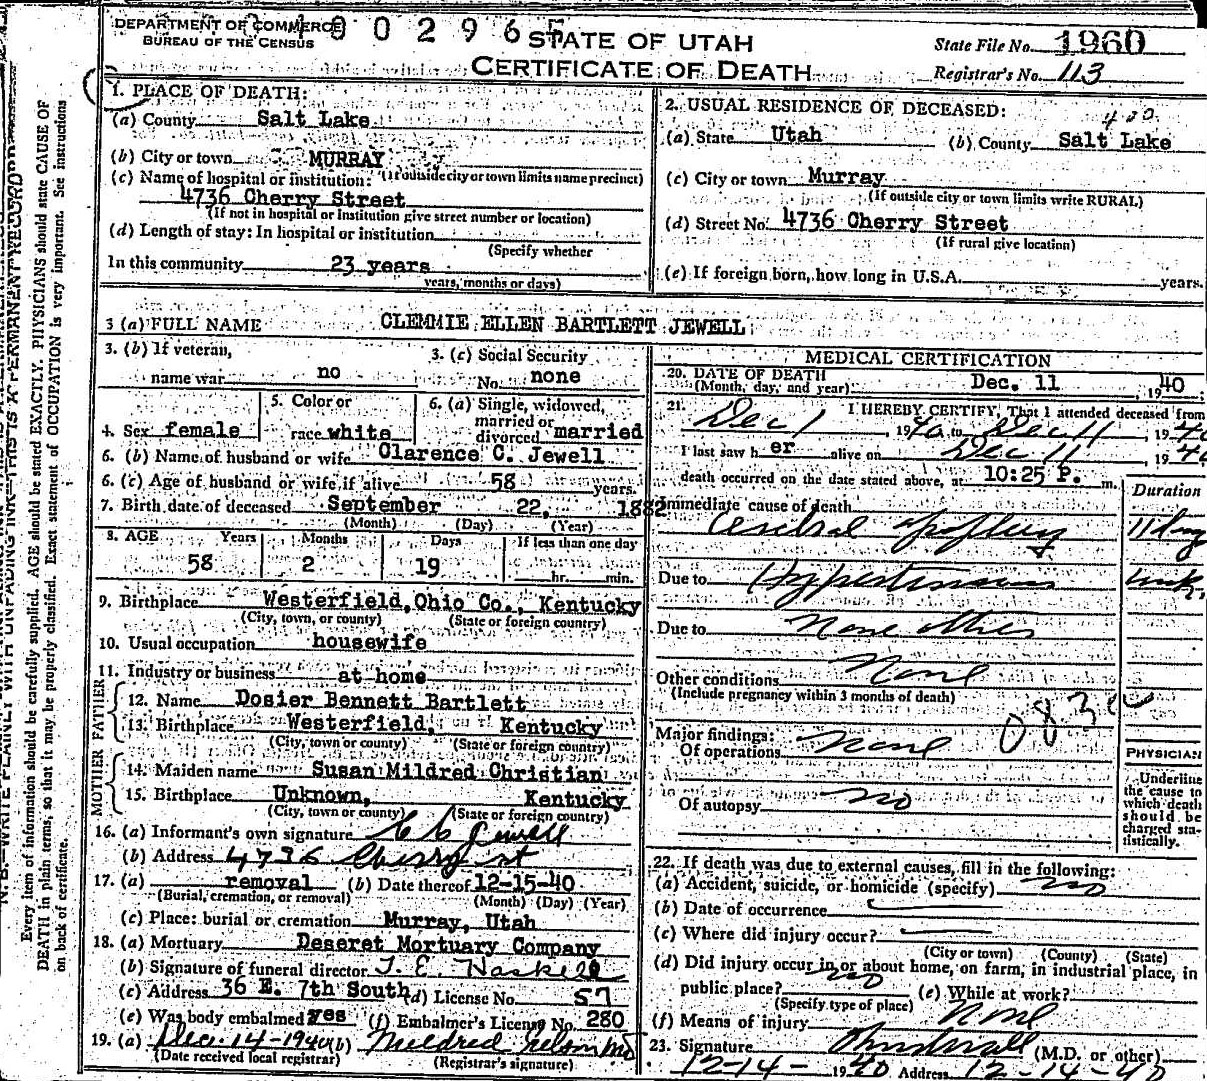 DEPARTMENT OF COMMERCE
BUREAU OF THE CENSUS
STATE OF UTAH
CERTIFICATE OF DEATH
State File No. 1960
Registrar's No. 113
1. PLACE OF DEATH:
(a) County Salt Lake
(b) City or town MURRAY
(If outside city or town limits name precinct)
(c) Name of hospital or institution:
4736 Cherry Street
(If not in hospital or institution give street number or location)
(d) Length of stay: In hospital or institution
(Specify whether
In this community 23 years
years, months or days)
2. USUAL RESIDENCE OF DECEASED:
(a) State Utah (b) County Salt Lake
(c) City or town Murray
(If outside city or town limits write RURAL)
(d) Street No. 4736 Cherry Street
(If rural give location)
(e) If foreign born, how long in U.S.A. years.
3 (a) FULL NAME CLEMMIE ELLEN BARTLETT JEWELL
3. (b) If veteran,
name war no
3. (c) Social Security
No. none
4. Sex female
5. Color or
race white
6. (a) Single, widowed,
married or
divorced married
6. (b) Name of husband or wife Clarence C. Jewell
6. (c) Age of husband or wife if alive 58 years.
7. Birth date of deceased September 22, 1882
(Month) (Day) (Year)
8. AGE Years Months Days If less than one day
58 2 19 hr. min.
9. Birthplace Westerfield, Ohio Co., Kentucky
(City, town, or county) (State or foreign country)
10. Usual occupation housewife
11. Industry or business at home
FATHER
12. Name Dosier Bennett Bartlett
13. Birthplace Westerfield, Kentucky
(City, town or county) (State or foreign country)
MOTHER
14. Maiden name Susan Mildred Christian
15. Birthplace Unknown, Kentucky
(City, town or county) (State or foreign country)
16. (a) Informant's own signature C C Jewell
(b) Address 4736 Cherry st
17. (a) removal (b) Date thereof 12-15-40
(Burial, cremation, or removal) (Month) (Day) (Year)
(c) Place: burial or cremation Murray, Utah
18. (a) Mortuary Deseret Mortuary Company
(b) Signature of funeral director
(c) Address 36 E. 7th South (d) License No. 57
(e) Was body embalmed yes (f) Embalmer's License No. 280
19. (a) Dec. 14-1940 (b) Mildred Nelson MD
(Date received local registrar) (Registrar's signature)
MEDICAL CERTIFICATION
20. DATE OF DEATH
(Month, day, and year) Dec. 11, 1940
21. I HEREBY CERTIFY, That I attended deceased from
Dec 1, 1940 to Dec 11, 1940
I last saw her alive on Dec 11, 1940
death occurred on the date stated above, at 10:25 P. m.
Duration
Immediate cause of death
Cerebral apoplexy 11 day
Due to Hypertension unk.
Due to None other
Other conditions None
(Include pregnancy within 3 months of death)
Major findings:
Of operations None
Of autopsy no
PHYSICIAN
Underline
the cause to
which death
should be
charged sta-
tistically.
22. If death was due to external causes, fill in the following:
(a) Accident, suicide, or homicide (specify) no
(b) Date of occurrence
(c) Where did injury occur?
(City or town) (County) (State)
(d) Did injury occur in or about home, on farm, in industrial place, in
public place? no (e) While at work?
(Specify type of place)
(f) Means of injury None
23. Signature (M.D. or other)
12-14-1940 Address 12-14-40
N. B.—WRITE PLAINLY WITH UNFADING INK—THIS IS A PERMANENT RECORD
Every item of information should be carefully supplied. AGE should be stated EXACTLY. PHYSICIANS should state CAUSE OF
DEATH in plain terms, so that it may be properly classified. Exact statement of OCCUPATION is very important. See instructions
on back of certificate.